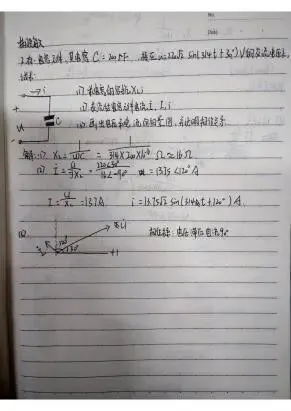 No.
Date
2.有一电容元件,其电容 C = 200μF,接在u=220√2 sin(314t+30°)V的交流电源上,
试求:
→ i
+
u
C
-
(1) 求电容的容抗Xc;
(2) 求流过电容元件电流 İ、i;
(3) 画出电压和电流的向量图,并说明相位关系
解:(1) Xc = 1/ωC = 1/314×200×10⁻⁶ Ω ≈ 16Ω
(2) = 220∠30°/16∠-90° = 13.75∠120° A
I = U/Xc = 13.7A i = 13.75√2 sin(314t+120°) A
(3)
120°
30°
+1
相位关系:电压滞后电流90°